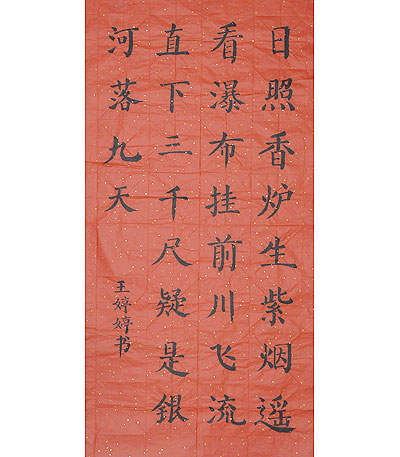 日照香炉生紫烟遥
看瀑布挂前川飞流
直下三千尺疑是銀
河落九天
王婷婷书